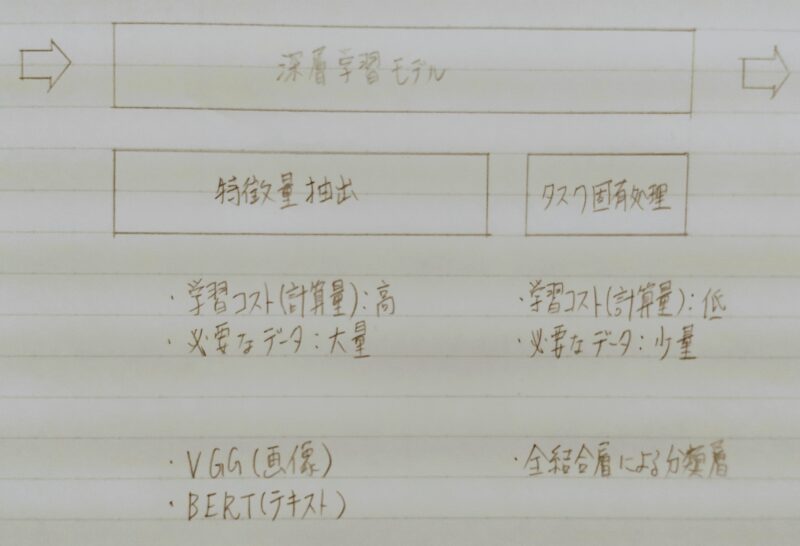 深層学習モデル
特徴量抽出
タスク固有処理
・学習コスト(計算量):高
・必要なデータ:大量
・学習コスト(計算量):低
・必要なデータ:少量
・VGG(画像)
・BERT(テキスト)
・全結合層による分類層